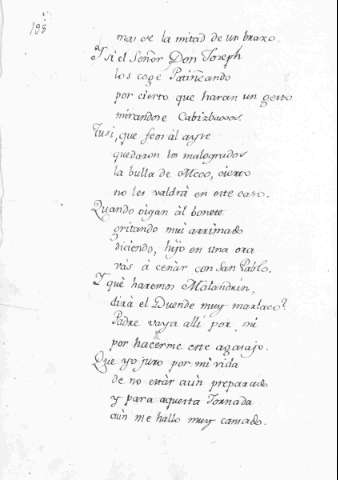 198
mas de la mitad de un brazo.
Y si el Señor Don Joseph
los coge Patiñeando
por cierto que haran un gesto
mirandose Cabizbaxos.
Y si, que feos àl ayre
quedaron los malogrados
la bulla de Meco, cierto
no les valdrà en este caso.
Quando oigan àl bonete
gritando mui arrimado
diciendo, hijo en una ora
vàs à cenàr con San Pablo.
Y què haremos Malandrin,
dirà el Duende muy marlaco?
Padre vaya alli por mi
por hacerme este agasajo.
Que yo juro por mi vida
de no estàr aùn preparado
y para aquesta Jornada
aùn me hallo muy cansado.